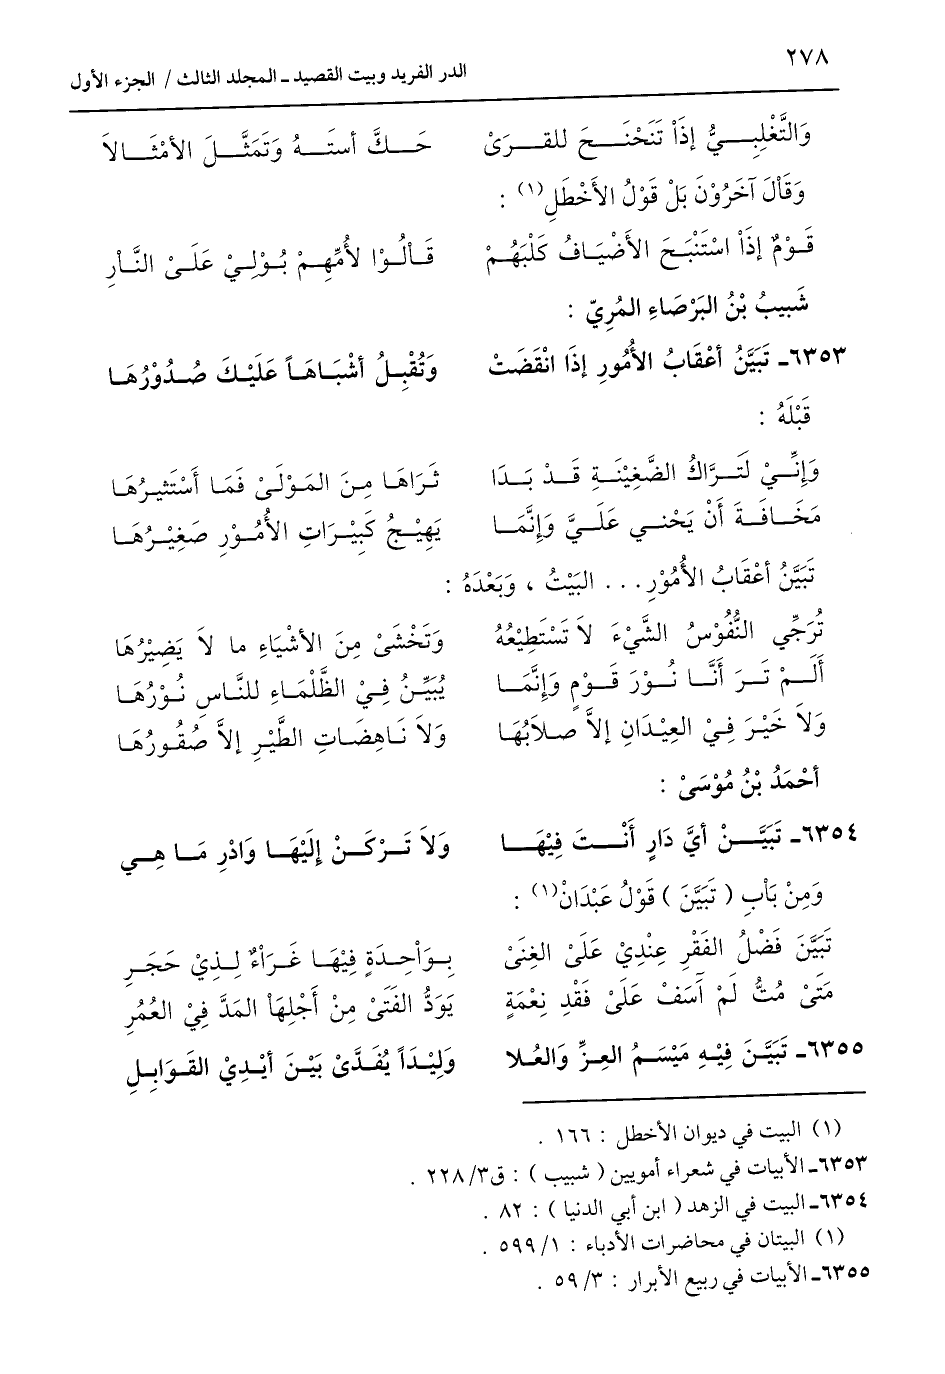 ٢٧٨
الدر الفريد وبيت القصيد ـ المجلد الثالث / الجزء الأول
وَالتَّغْلِبِيُّ إذَاْ تَنَحْنَحَ للقرَىْ حَكَّ أستَهُ وَتَمَثَّلَ الأمْثَالاَ
وَقَاْلَ آخَرُوْنَ بَلْ قَوْلُ الأَخْطَلِ(١) :
قَوْمٌ إذَاْ اسْتَنْبَحَ الأَضْيَافُ كَلْبَهُمْ قَاْلُوْا لأُمِّهِمْ بُوْلِيْ عَلَىْ النَّاْرِ
شَبِيبُ بْنُ البَرْصَاءِ المُريّ :
٦٣٥٣ـ تَبَيَّنُ أعْقَابُ الأُمُورِ إذَا انْقَضَتْ وَتُقْبِلُ أشْبَاهَاً عَلَيْكَ صُدُوْرُهَا
قَبْلَهُ :
وَإنِّيْ لَتَرَّاكُ الضَّغِيْنَةِ قَدْ بَدَا ثَرَاهَا مِنَ المَوْلَىْ فَمَا أَسْتَثيرُهَا
مَخَافَةَ أَنْ يَحْني عَلَيَّ وَإنَّمَا يَهِيْجُ كَبِيْرَاتِ الأُمُوْرِ صَغِيْرُهَا
تَبَيَّنُ أعْقَابُ الأُمُوْرِ ... البَيْتُ ، وَبَعْدَهُ :
تُرَجِّي النُّفُوْسُ الشَّيْءَ لاَ تَسْتَطِيْعُهُ وَتَخْشَىْ مِنَ الأشْيَاءِ ما لاَ يَضِيْرُهَا
أَلَمْ تَرَ أنَّا نُوْرَ قَوْمٍ وَإنَّمَا يُبَيِّنُ فِيْ الظَّلْمَاءِ للنَّاسِ نُوْرُهَا
وَلاَ خَيْرَ فِيْ العِيْدَانِ إلاَّ صلاَبُهَا وَلاَ نَاهِضَاتِ الطَّيْرِ إلاَّ صُقُورُهَا
أحْمَدُ بْنُ مُوْسَىْ :
٦٣٥٤ـ تَبَيَّنْ أيَّ دَارٍ أَنْتَ فِيْهَا وَلاَ تَرْكَنْ إلَيْهَا وَادْرِ مَا هِي
وَمِنْ بَاْبِ ( تَبَيَّنَ ) قَوْلُ عَبْدَانْ(١) :
تَبَيَّنَ فَضْلُ الفَقْرِ عِنْدِيْ عَلَىْ الغِنَىْ بِوَاْحِدَةٍ فِيْهَا غَرَاْءٌ لِذِيْ حَجَرِ
مَتَىْ مُتُّ لَمْ آسَفْ عَلَىْ فَقْدِ نِعْمَةٍ يَوَدُّ الفَتَىْ مِنْ أَجْلِهَاْ المَدَّ فِيْ العُمُرِ
٦٣٥٥ـ تَبَيَّنَ فِيْهِ مَيْسَمُ العِزِّ وَالعُلا وَلِيْدَاً يُفَدَّىْ بَيْنَ أيْدِيْ القَوَابِلِ
(١) البيت في ديوان الأخطل : ١٦٦ .
٦٣٥٣ـ الأبيات في شعراء أمويين ( شبيب ) : ق٣/ ٢٢٨ .
٦٣٥٤ـ البيت في الزهد ( ابن أبي الدنيا ) : ٨٢ .
(١) البيتان في محاضرات الأدباء : ١/ ٥٩٩ .
٦٣٥٥ـ الأبيات في ربيع الأبرار : ٣/ ٥٩ .